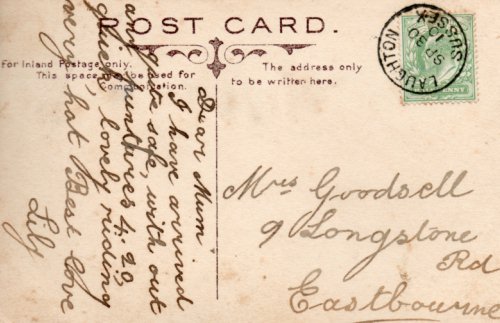 POST CARD.
For Inland Postage only.
This space may be used for
Communication.
The address only
to be written here.
LAUGHTON
SUSSEX
Dear Mum
I have arrived
quite safe, with out
any
4.20
lovely riding
very hot Best Love
Lily
Mrs Goodsell
9 Longstone
Rd
Eastbourne